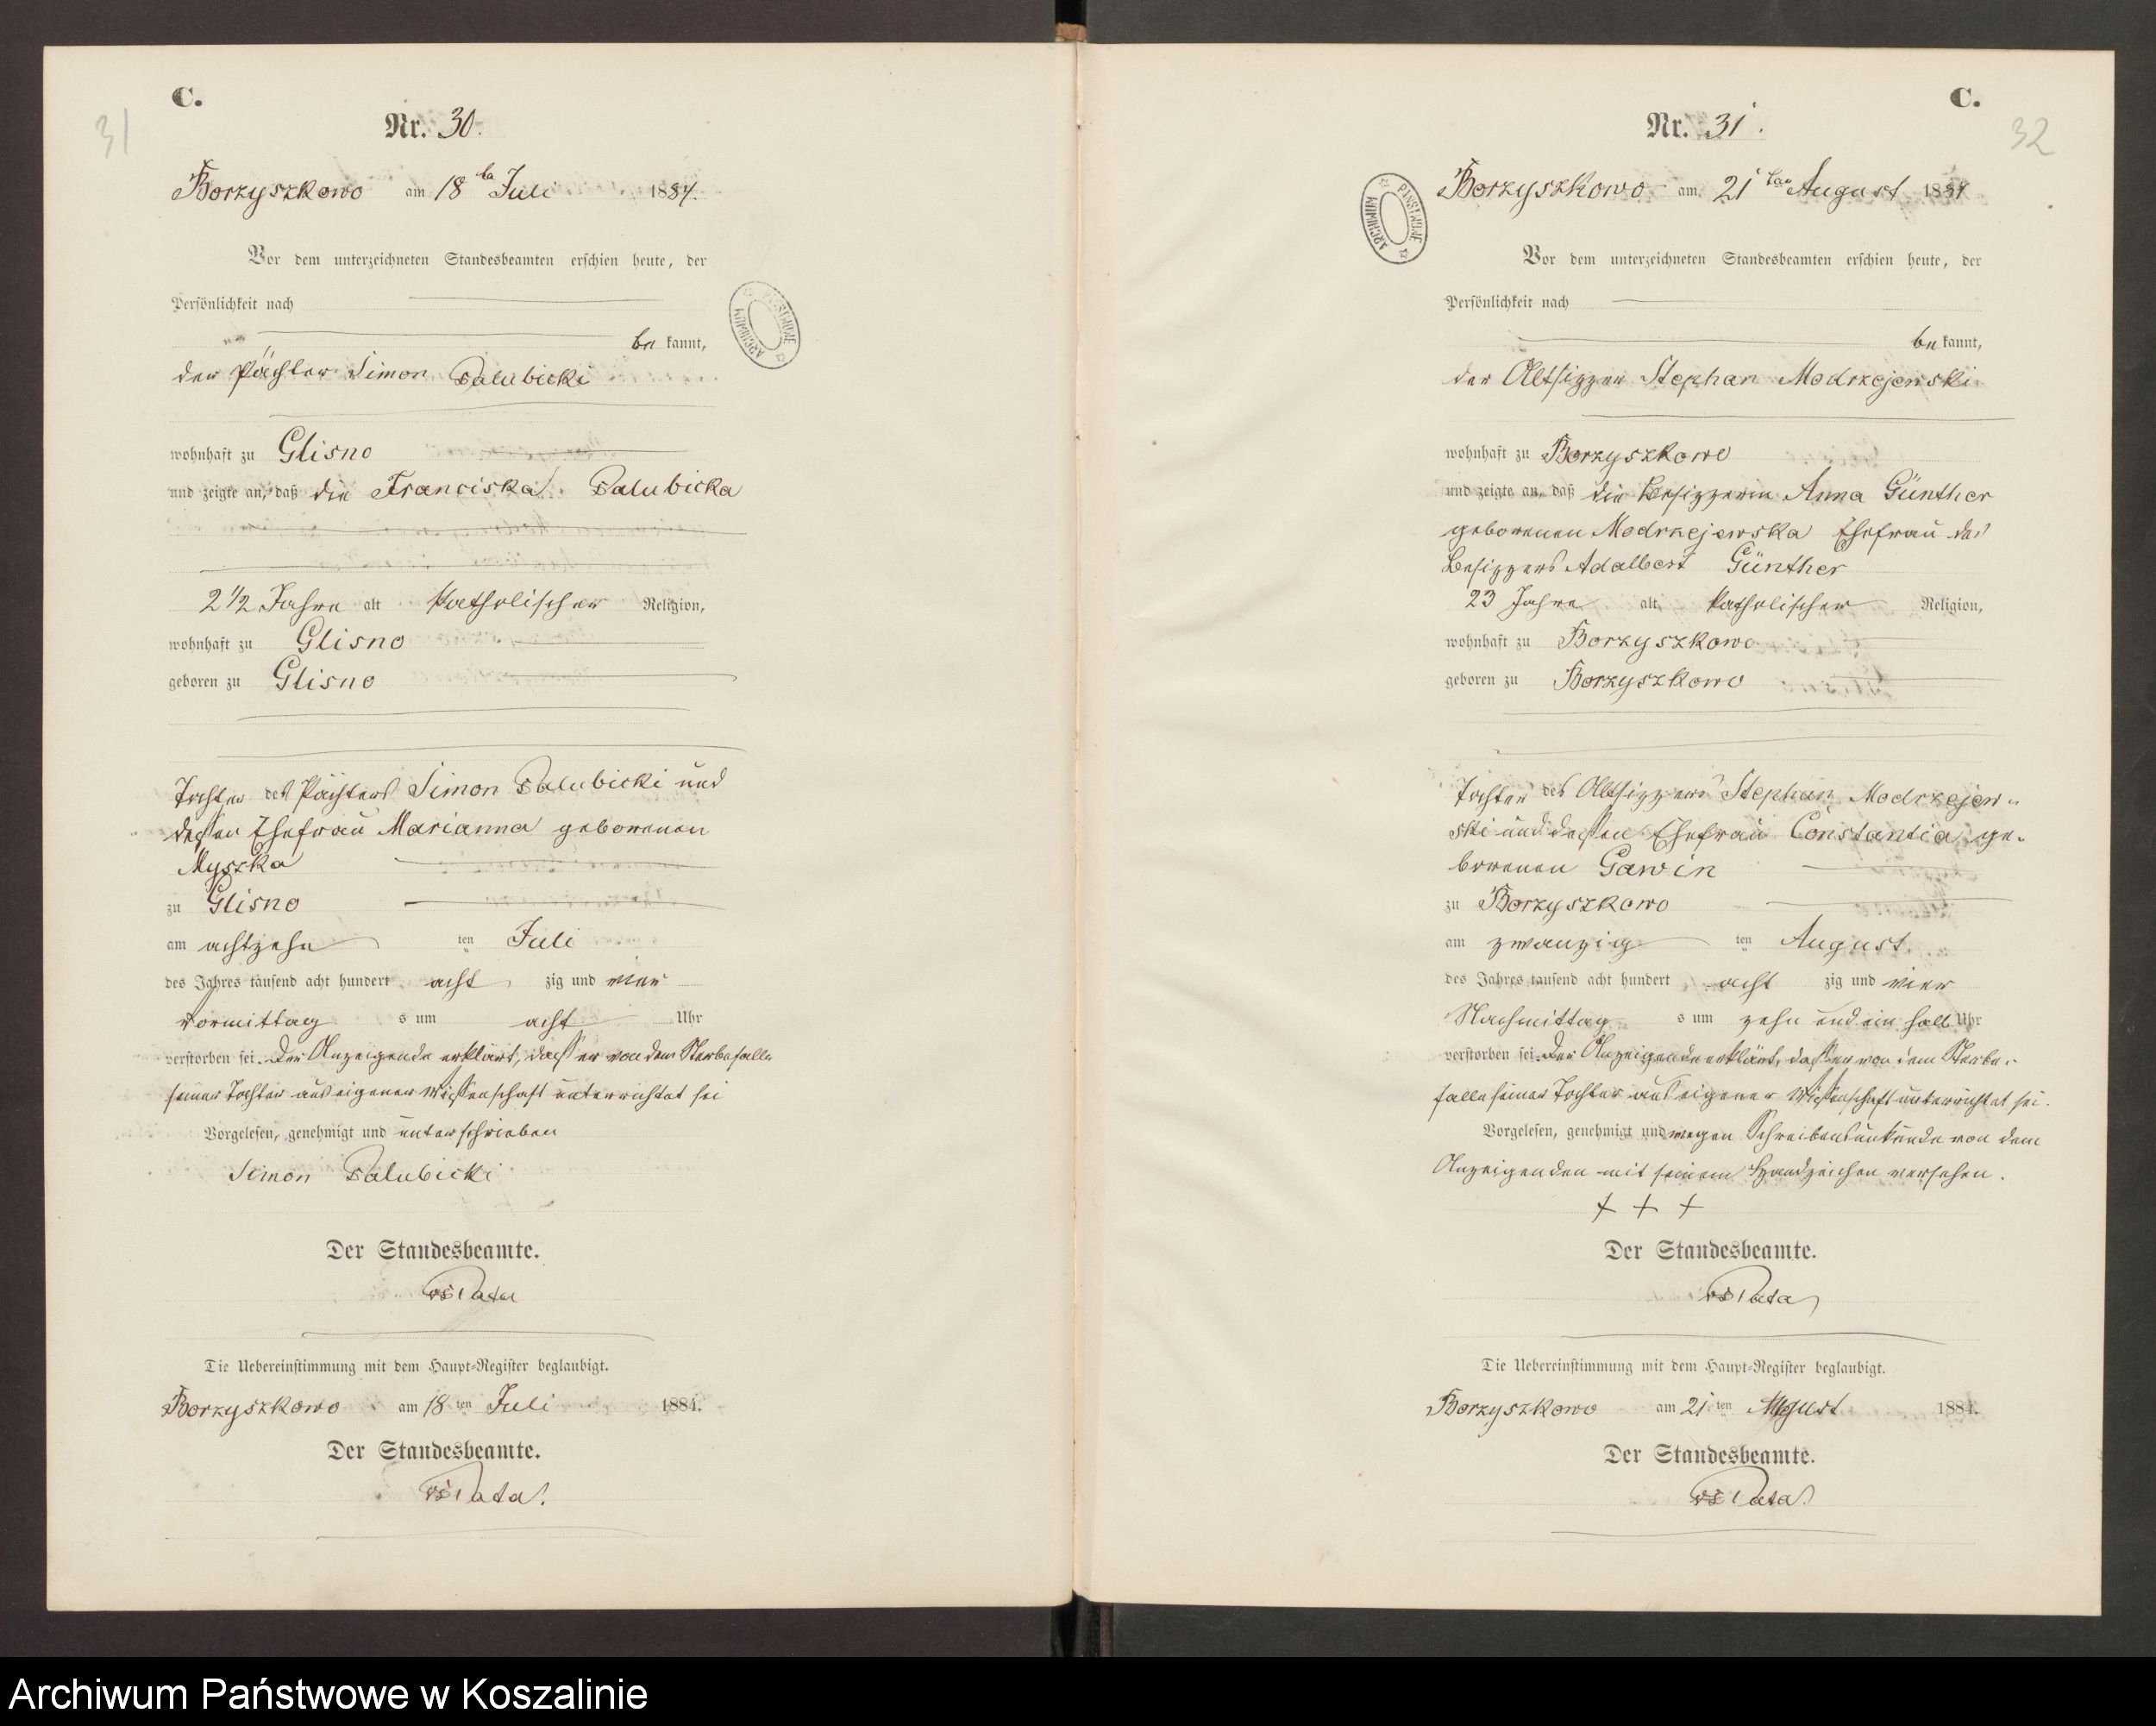 C.
31
Nr. 30.
Borzyszkowo am 18 ten Juli 1884.
Vor dem unterzeichneten Standesbeamten erschien heute, der
Persönlichkeit nach
be kannt,
der Pächter Simon Palubicki
wohnhaft zu Glisno
und zeigte an, daß die Franciska Palubicka
2 1/2 Jahre alt katholischer Religion,
wohnhaft zu Glisno
geboren zu Glisno
Tochter des Pächters Simon Palubicki und
dessen Ehefrau Marianna geborenen
Myszka
zu Glisno
am achtzehn ten Juli
des Jahres tausend acht hundert acht zig und vier
Vormittag s um acht Uhr
verstorben sei. Der Anzeigende erklärt, dass er von dem Sterbefalle
seiner Tochter aus eigener Wissenschaft unterrichtet sei
Vorgelesen, genehmigt und unterschrieben
Simon Palubicki
Der Standesbeamte.
Die Uebereinstimmung mit dem Haupt-Register beglaubigt.
Borzyszkowo am 18 ten Juli 1884.
Der Standesbeamte.
ARCHIWUM PAŃSTWOWE
C.
32
Nr. 31.
Borzyszkowo am 21 ten August 1884
Vor dem unterzeichneten Standesbeamten erschien heute, der
Persönlichkeit nach
be kannt,
der Altsitzer Stephan Modrzejewski
wohnhaft zu Borzyszkowo
und zeigte an, daß die Besitzerin Anna Günther
geborenen Modrzejewska Ehefrau des
Besitzers Adalbert Günther
23 Jahre alt, katholischer Religion,
wohnhaft zu Borzyszkowo
geboren zu Borzyszkowo
Tochter des Altsitzers Stephan Modrzejew-
ski und dessen Ehefrau Constantia ge-
borenen Gawin
zu Borzyszkowo
am zwanzig ten August
des Jahres tausend acht hundert acht zig und vier
Nachmittag s um zehn und ein halb Uhr
verstorben sei. Der Anzeigende erklärt, dass er von dem Sterbe-
falle seiner Tochter aus eigener Wissenschaft unterrichtet sei.
Vorgelesen, genehmigt und wegen Schreibensunkunde von dem
Anzeigenden mit seinem Handzeichen versehen.
+ + +
Der Standesbeamte.
Die Uebereinstimmung mit dem Haupt-Register beglaubigt.
Borzyszkowo am 21 ten August 1884.
Der Standesbeamte.
ARCHIWUM PAŃSTWOWE
Archiwum Państwowe w Koszalinie